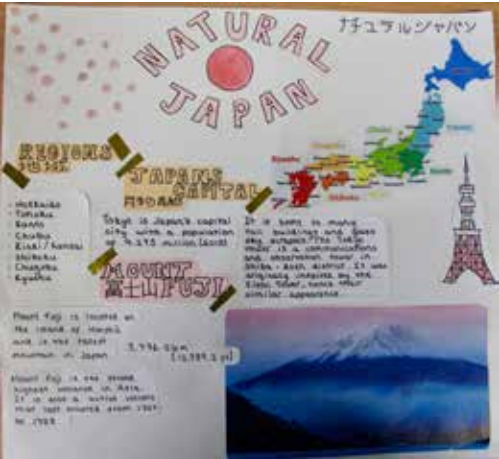 NATURAL
JAPAN
ナチュラルジャパン
REGIONS
地域
Hokkaido
Tohoku
Kanto
Chubu
Kinki/Kansai
Shikoku
Chugoku
Kyushu
JAPANS
CAPITAL
Tokyo is Japan's capital
city with a population
of million
It is home to many
tall buildings and
sky scrapers. The Tokyo
tower is a communications
and observation tower in
Shiba-koen district. It was
originally inspired by the
Eiffel Tower, hence their
similar appearance
MOUNT
富士山 FUJI
Mount Fuji is located on
the island of Honshū
and is the tallest
mountain in Japan
Mount Fuji is the
highest volcano in Asia.
It is also a active volcano
that last erupted from 1707
to 1708